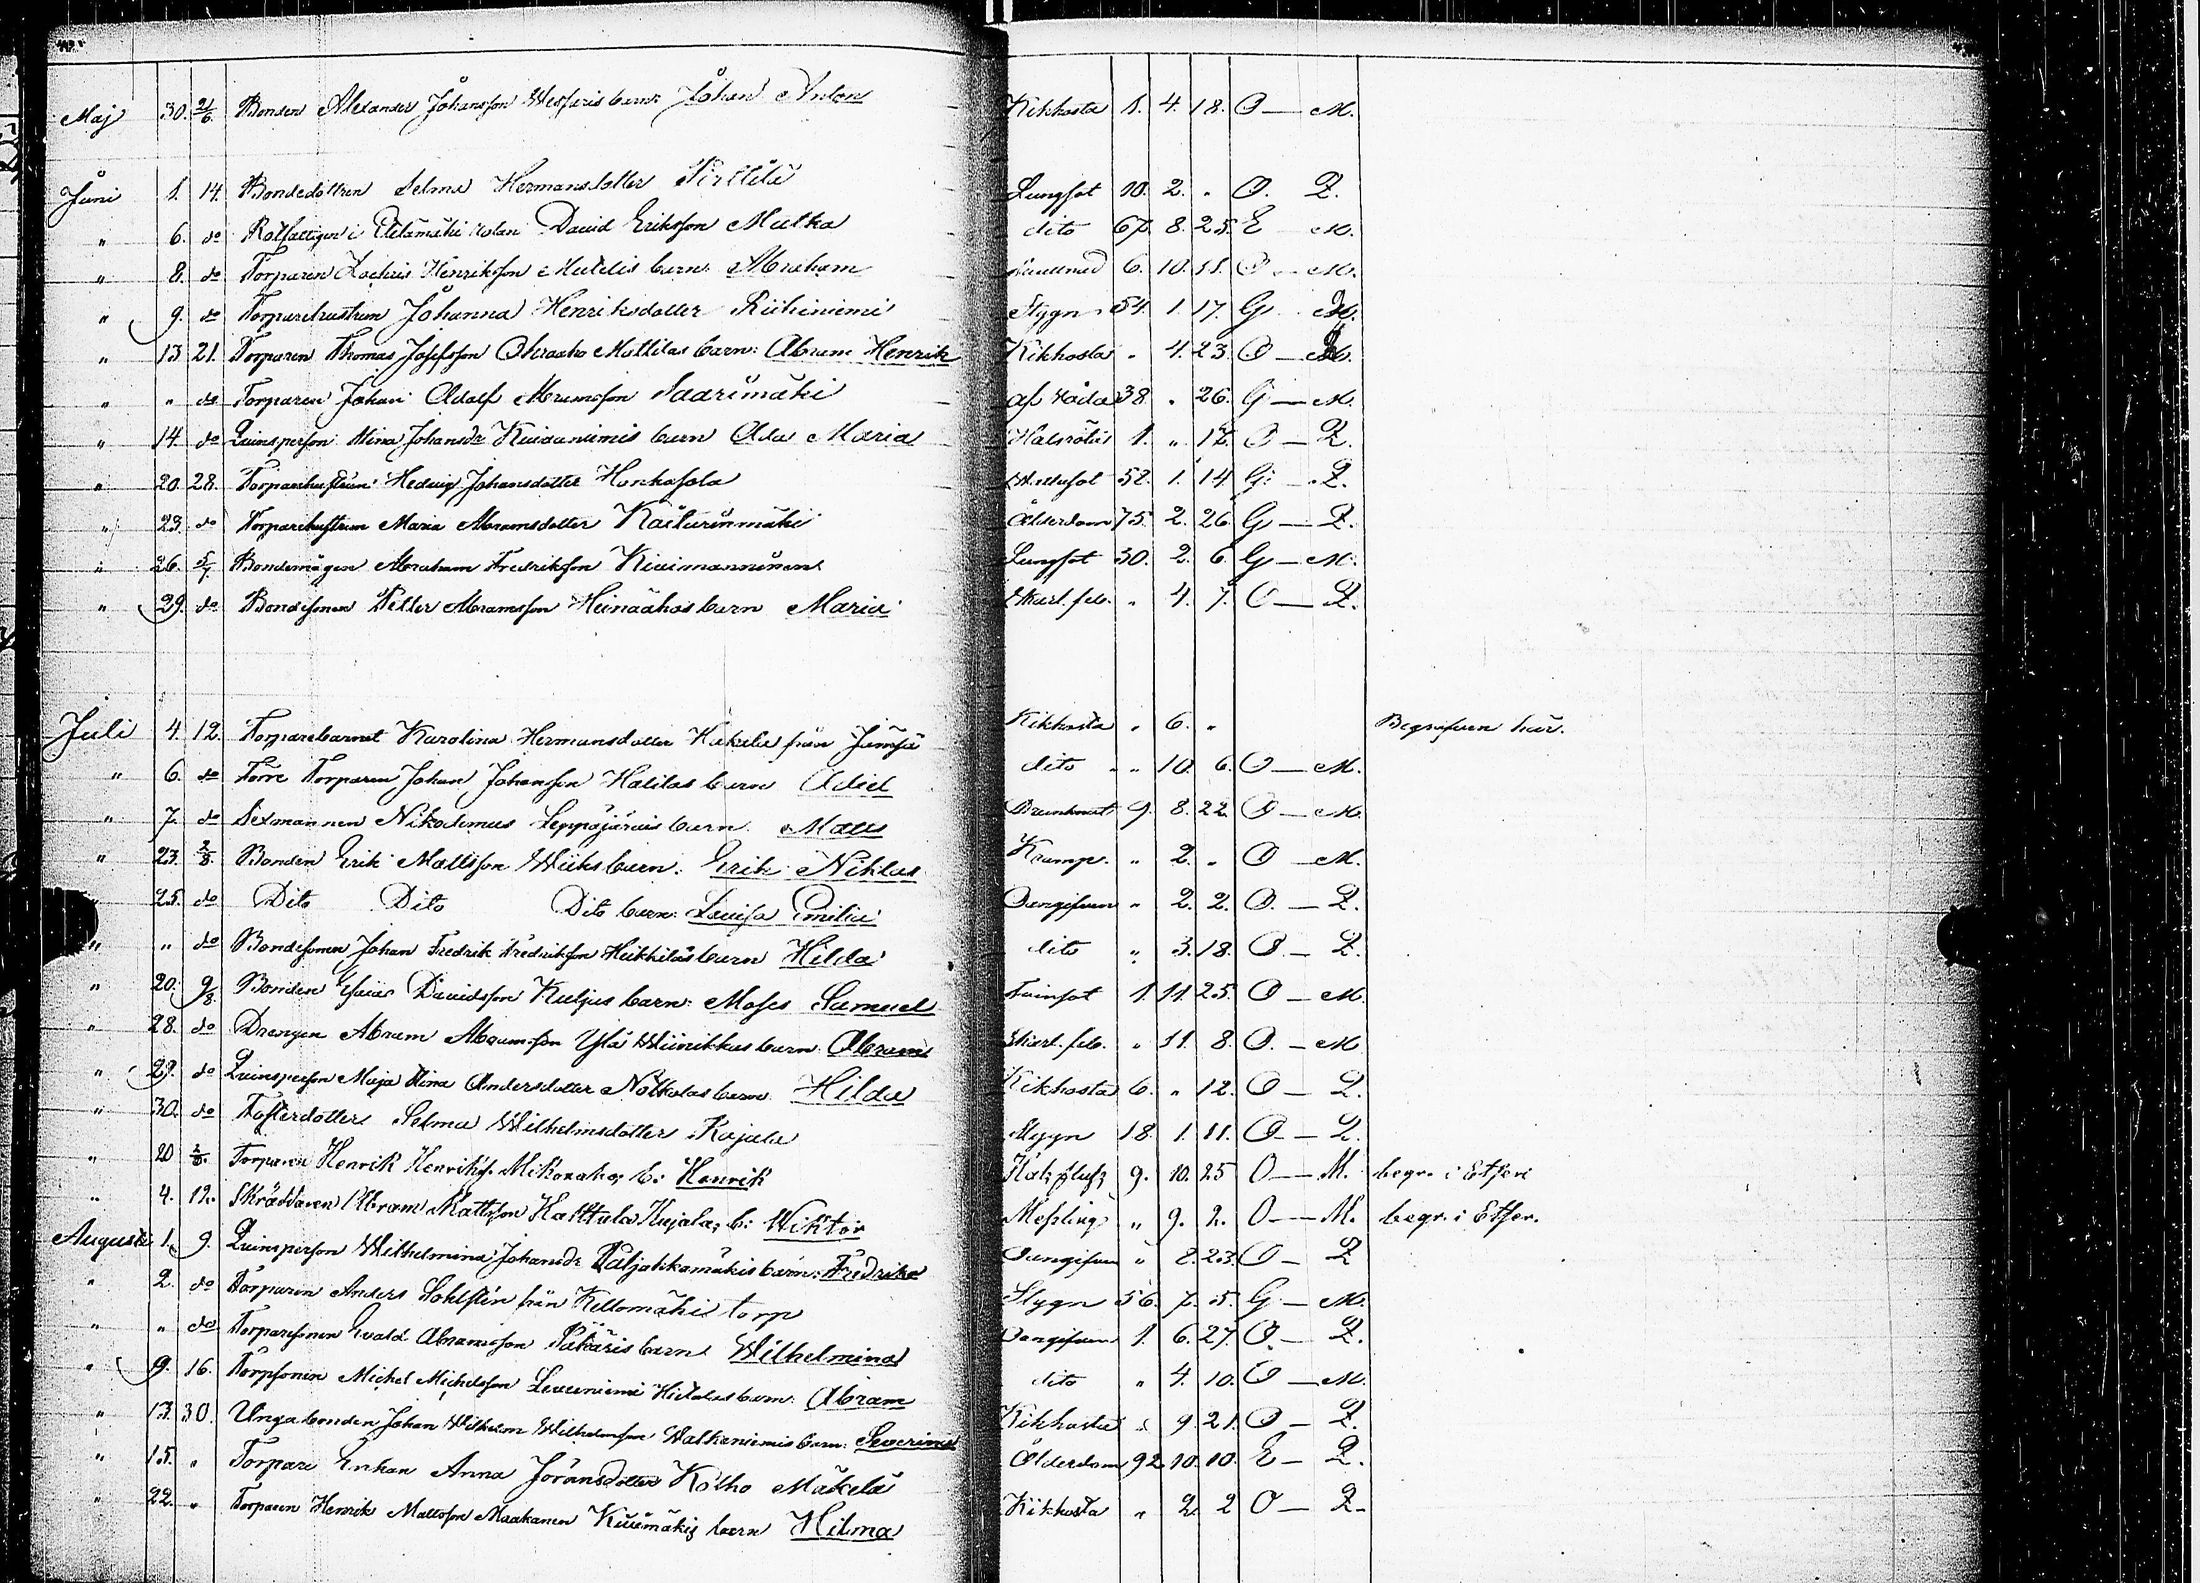 Maj 30. 21/6. Bonden Alexander Johansson Wesaris barn: Johan Anton Kikhosta 1. 4. 18. O — M.
Juni 1. 14. Bondedottren Selma Hermansdotter Pirttilä Lungsot 10. 2. " O. Q.
" 6. do Rotfattigen i rotan David Eriksson Mutka dito 67. 8. 25. E M.
" 8. do Torparen Henriksson barn: Abraham 6. 10. 11. O — M.
" 9. do Torparehustrun Johanna Henriksdotter Riihiniemi Stygn 54. 1. 17. G
" 13 21. Torparen Thomas Josefsson Mattilas barn: Abram Henrik Kikhosta " 4. 23. O — M.
" " do Torparen Johan Adolf Abramsson Saarimäki af Våda 38. " 26. G — M.
" 14. do Qvinsperson Mina Johansdr barn Ada Maria Halsröta 1. " 17. O — Q.
" 20. 28. Torparehustrun Hedvig Johansdotter Honkasola 52. 1. 14 G. — Q.
" 23. do Torparehustrun Maria Abramsdotter Raiturinmäki Ålderdom 75. 2. 26. G — Q.
" 26. 5/7. Bondemågen Abraham Fredriksson Kivimanninen Lungsot 30. 2. 6. G — M.
" 29. do Bondesonen Petter Abramsson Heinäahos barn Maria Skarl. feb. " 4. 7. O — Q.
Juli 4. 12. Torparebarnet Karolina Hermansdotter Hakala från Jämsä Kikhosta " 6. " Begrafven här.
" 6. do Förre Torparen Johan Johansson Halilas barn Adiel dito " 10. 6. O — M.
" 7. do Sexmannen Nikodemus Leppäjärvis barn. Matts 9. 8. 22. O — M.
" 23. 2/8. Bonden Erik Mattsson Wieks barn. Erik Niklas Kramp. " 2. " O — M.
25. do Dito Dito Dito barn: Lovisa Emilia " 2. 2. O. — Q.
" " do Bondesonen Johan Fredrik Fredriksson Heikkiläs barn Hilda dito " 3. 18. O. — Q.
" 20. 9/8. Bonden Esaias Davidsson Kuljus barn: Moses Samuel 1. 11. 25. O — M.
" 28. do Drengen Abram Abramsson Ylä Wiinikkas barn Abram Skarl. feb. " 11. 8. O. — M
" 29. do Qvinsperson Maja Stina Andersdotter Nolkolas barn Hilda Kikhosta 6. " 12. O — Q.
" 30. do Fosterdotter Selma Wilhelmsdotter Rajala Stygn 18. 1. 11. O — Q.
" 20 2/8. Torparen Henrik Henriks. b: Henrik 9. 10. 25 O — M. begr. i Etseri
" 4. 12. Skräddaren Abram Mattsson Kalttula Kujala, b: Wiktor Messling " 9. 2. O — M. begr. i Etser.
Augusti 1. 9. Qvinsperson Wilhelmina Johansdr barn: Fredrika " 8. 23. O — Q
" 2. do Torparen Anders Sohlstén från Kellomäki torp Stygn 56. 7. 5. G — M.
" " do Torparesonen Evald Abramsson barn Wilhelmina 1. 6. 27. O. — Q.
" 9. 16. Torpsonen Michel Michelsson Leveniemi barn Abram dito " 4. 10. O — M.
" 13. 30. Unga bonden Johan Wilhelm Wilhelmsson Valkeniemis barn: Severina Kikhosta " 9. 21. O — Q.
" 15. " Torpare Enkan Anna Joransdotter Mäkelä Ålderdom 92. 10. 10. E — Q.
" 22. " Torparen Henrik Mattsson Maakanen Kivimäkis barn Hilma Kikhosta " 2. 2 O — Q.